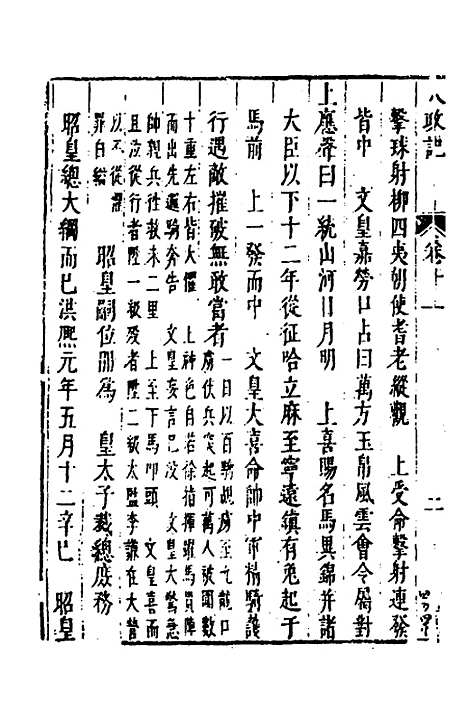 大政記 卷十一 二
擊球射柳四夷朝使耆老縱觀 上受命擊射連發
皆中 文皇嘉勞口占曰萬方玉帛風雲會令屬對
上應聲曰一統山河日月明 上喜賜名馬異錦并諸
大臣以下十二年從征哈立麻至寧遠鎮有兎起于
馬前 上一發而中 文皇大喜命帥中軍精騎護
行遇敵摧破無敢當者
一日以百騎覘虜至九龍口
虜伏兵突起可萬人被圍數
十重左右皆大懼 上神色自若徐指揮躍馬貫陣
而出先邏騎奔告 文皇妄言已沒 文皇大驚急
帥親兵徃救未二里 上至下馬叩頭 文皇喜而
且泣從行者陞一級殁者陞二級太監李謙在大營
以不從謂
罪自縊
昭皇嗣位冊爲 皇太子裁總庶務
昭皇總大綱而已洪熙元年五月十二辛巳 昭皇